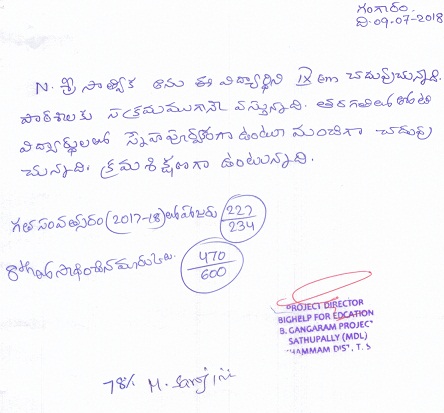 గంగారం.
ది.09.07-2018
N. శ్రీ సాత్విక అను ఈ విద్యార్థిని IX EM చదువుచున్నాది.
పాఠశాలకు సక్రమముగానే వస్తున్నాది. తరగతిలో తోటి
విద్యార్థులలో స్నేహపూర్వకంగా ఉంటూ మంచిగా చదువు
చున్నాది. క్రమశిక్షణగా ఉంటున్నాది.
గత సంవత్సరం (2017-18) లో హాజరు 227/234
సాధించిన మార్కులు. 470/600
PROJECT DIRECTOR
BIGHELP FOR EDCATION
B. GANGARAM PROJEC
SATHUPALLY (MDL)
HAMMAM DIST. T. S
78% M.